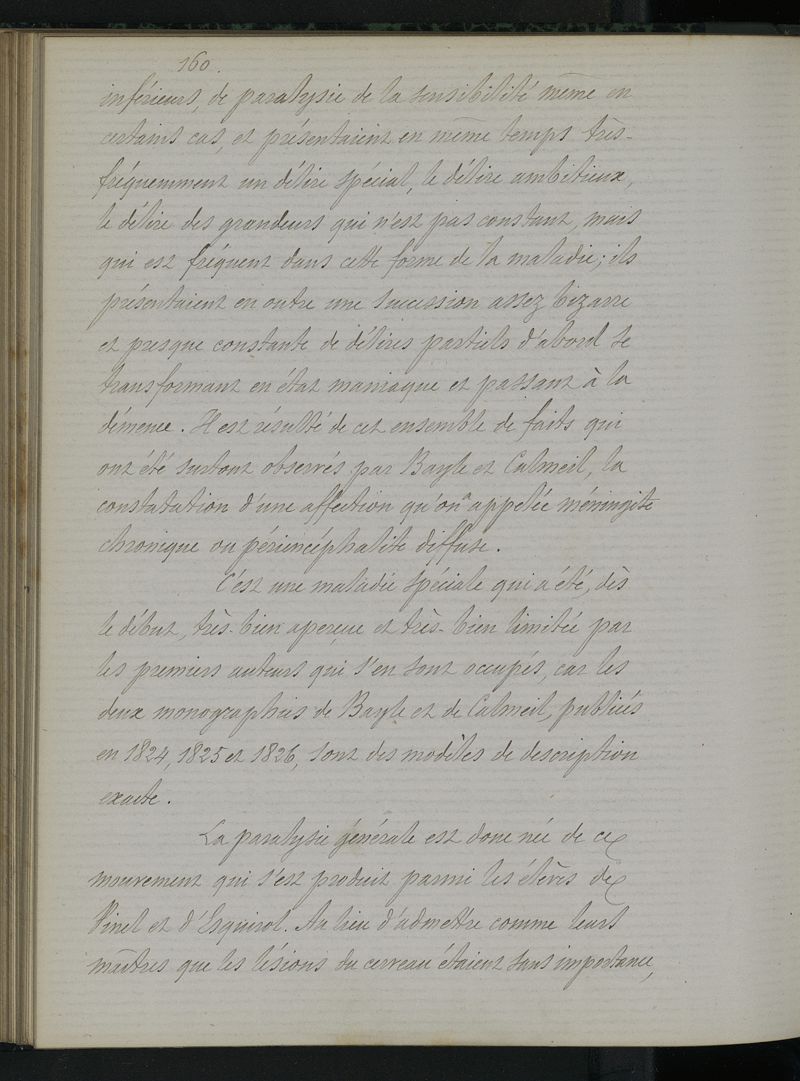 160.
inférieurs, de paralysie de la sensibilité même en
certains cas, et présentaient en même temps très-
fréquemment un délire spécial, le délire ambitieux,
le délire des grandeurs qui n'est pas constant, mais
qui est fréquent dans cette forme de la maladie; ils
présentaient en outre une succession assez bizarre
et presque constante de délires partiels d'abord se
transformant en état maniaque et passant à la
démence. Il est résulté de cet ensemble de faits qui
ont été surtout observés par Bayle et Calmeil, la
constatation d'une affection qu'on a appelée méningite
chronique ou périencéphalite diffuse.
C'est une maladie spéciale qui a été, dès
le début, très-bien aperçue et très-bien limitée par
les premiers auteurs qui s'en sont occupés, car les
deux monographies de Bayle et de Calmeil, publiées
en 1824, 1825 et 1826, sont des modèles de description
exacte.
La paralysie générale est donc née de ce
mouvement qui s'est produit parmi les élèves de
Pinel et d'Esquirol. Au lieu d'admettre comme leurs
maîtres que les lésions du cerveau étaient sans importance,